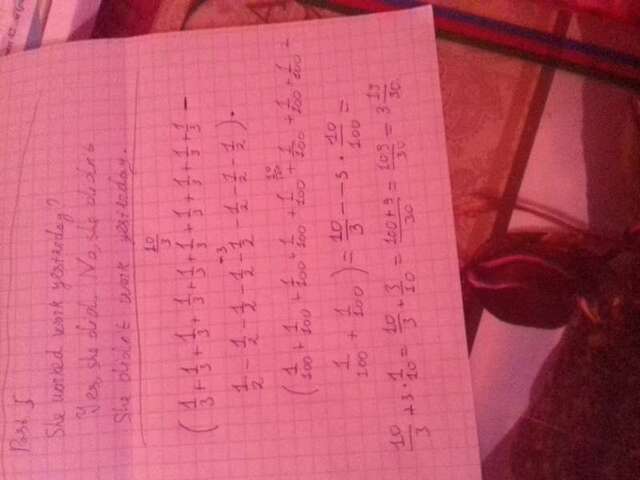 Past S
She worked work yesterday?
Yes, she did. No, she didn't
She didn't work yesterday.
10/3
(1/3 + 1/3 + 1/3 + 1/3 + 1/3 + 1/3 + 1/3 + 1/3 + 1/3 + 1/3 -
-3
1/2 - 1/2 - 1/2 - 1/2 - 1/2 - 1/2 - 1/2 - 1/2) ·
(1/100 + 1/100 + 1/100 + 1/100 + 1/100 + 1/100 + 1/100 + 1/100 +
1/100 + 1/100) = 10/3 - -3 · 10/100 =
10/3 + 3 · 1/10 = 10/3 + 3/10 = 100+9/30 = 109/30 = 3 19/30